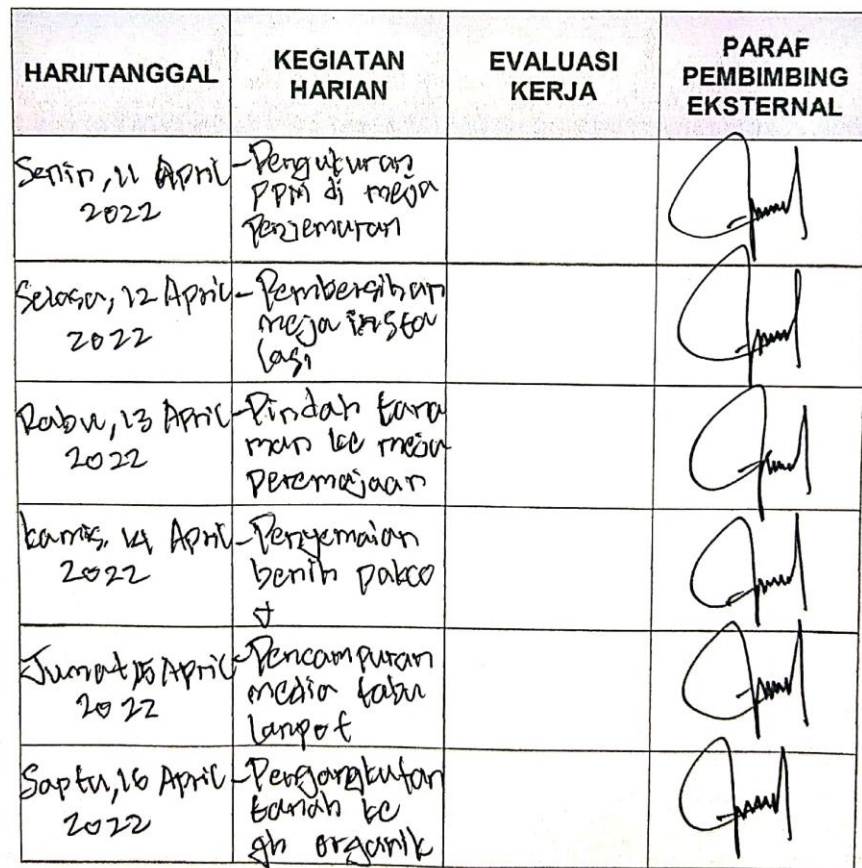 HARI/TANGGAL
KEGIATAN
HARIAN
EVALUASI
KERJA
PARAF
PEMBIMBING
EKSTERNAL
Senin, 11 April
2022
-Pengukuran
PPM di meja
Penjemuran
Selasa, 12 April
2022
-Pembersihan
meja insta
lasi
Rabu, 13 April
2022
-Pindah tana
man ke meja
peremajaan
kamis, 14 April
2022
-Penyemaian
benih pakco
Jumat, 15 April
2022
-Pencampuran
media tabu
lampot
Saptu, 16 April
2022
-Pengangkutan
tanah ke
gh organik